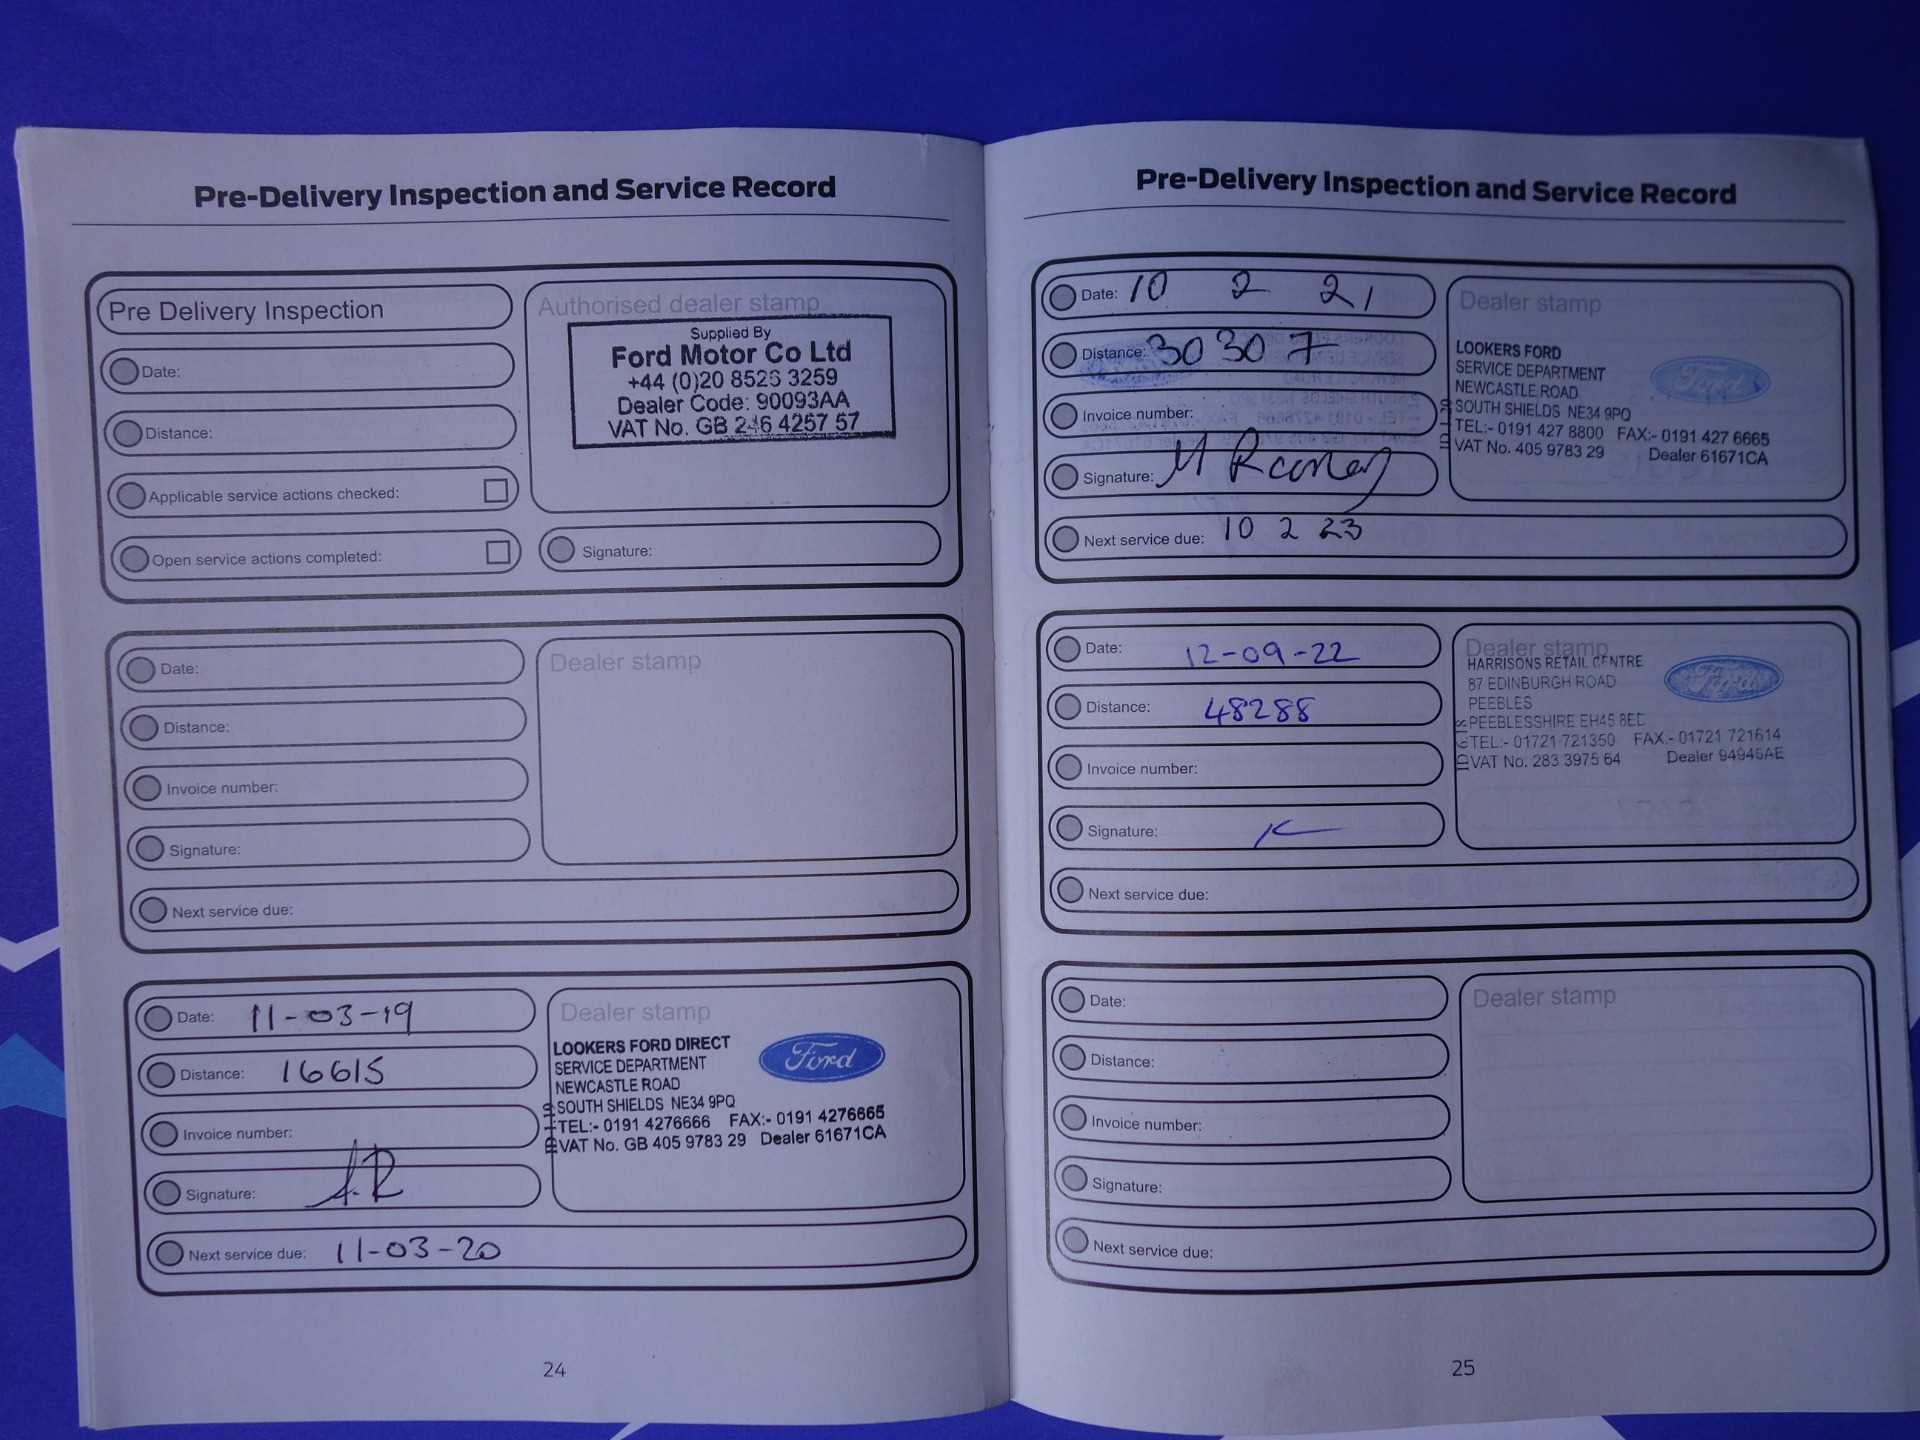 Pre-Delivery Inspection and Service Record
Pre Delivery Inspection
Date:
Distance:
Applicable service actions checked:
Open service actions completed:
Authorised dealer stamp
Supplied By
Ford Motor Co Ltd
+44 (0)20 8526 3259
Dealer Code: 90093AA
VAT No. GB 246 4257 57
Signature:
Date:
Distance:
Invoice number:
Signature:
Next service due:
Dealer stamp
Date: 11-03-19
Distance: 16615
Invoice number:
Signature: A.R
Next service due: 11-03-20
Dealer stamp
LOOKERS FORD DIRECT
SERVICE DEPARTMENT
NEWCASTLE ROAD
SOUTH SHIELDS NE34 9PQ
TEL:- 0191 4276666 FAX:- 0191 4276665
VAT No. GB 405 9783 29 Dealer 61671CA
Ford
24
Pre-Delivery Inspection and Service Record
Date: 10 2 21
Distance: 30307
Invoice number:
Signature: M Rooney
Next service due: 10 2 23
Dealer stamp
LOOKERS FORD
SERVICE DEPARTMENT
NEWCASTLE ROAD
SOUTH SHIELDS NE34 9PQ
TEL:- 0191 427 8800 FAX:- 0191 427 6665
VAT No. 405 9783 29 Dealer 61671CA
Ford
Date: 12-09-22
Distance: 48288
Invoice number:
Signature:
Next service due:
Dealer stamp
HARRISONS RETAIL CENTRE
87 EDINBURGH ROAD
PEEBLES
PEEBLESSHIRE EH45 8ED
TEL:- 01721 721350 FAX.- 01721 721614
VAT No. 283 3975 64 Dealer 94945AE
Ford
Date:
Distance:
Invoice number:
Signature:
Next service due:
Dealer stamp
25